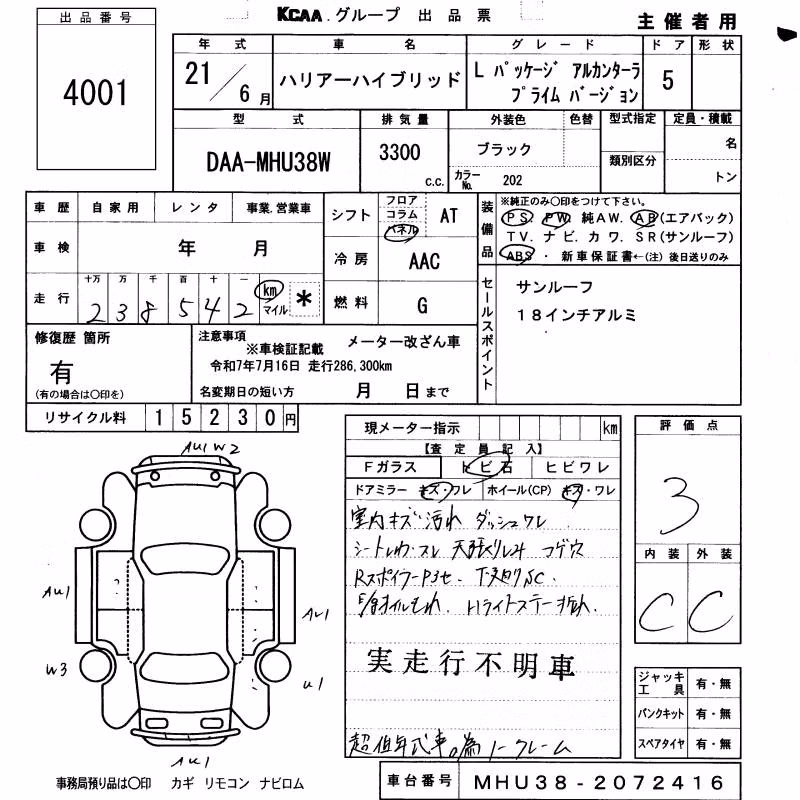 KCAA グループ 出品票
主催者用
出品番号
4001
年式 車名 グレード ドア 形状
21/6月 ハリアーハイブリッド L パッケージ アルカンターラ プライム バージョン 5
型式 排気量 外装色 色替 型式指定 定員・積載
DAA-MHU38W 3300 c.c. ブラック 類別区分 名
カラーNo. 202 トン
車歴 自家用 レンタ 事業.営業車
車検 年 月
走行 十万 万 千 百 十 一
2 3 8 5 4 2 km マイル *
シフト フロア コラム パネル AT
冷房 AAC
燃料 G
装備品 ※純正のみ〇印をつけて下さい。
PS PW 純AW. AB(エアバック)
TV. ナビ. カワ. SR(サンルーフ)
ABS ・ 新車保証書←(注) 後日送りのみ
セールスポイント
サンルーフ
18インチアルミ
修復歴 箇所
有
(有の場合は〇印を)
注意事項 メーター改ざん車
※車検証記載
令和7年7月16日 走行286,300km
名変期日の短い方 月 日まで
リサイクル料 15230円
現メーター指示 km
【査定員記入】
Fガラス トビ石 ヒビワレ
ドアミラー キズ・ワレ ホイール(CP) キズ・ワレ
室内キズ 汚れ ダッシュワレ
シート スレ 天張りシミ コゲ穴
Rスポイラー 下廻りSC.
オイルもれ. Hライトステー折れ.
実走行不明車
超低年式車の為ノークレーム
評価点
3
内装 外装
C C
ジャッキ工具 有・無
パンクキット 有・無
スペアタイヤ 有・無
AU1 W2
AU1
AU1
W3
U1
AU1
事務局預り品は〇印 カギ リモコン ナビロム
車台番号 MHU38-2072416